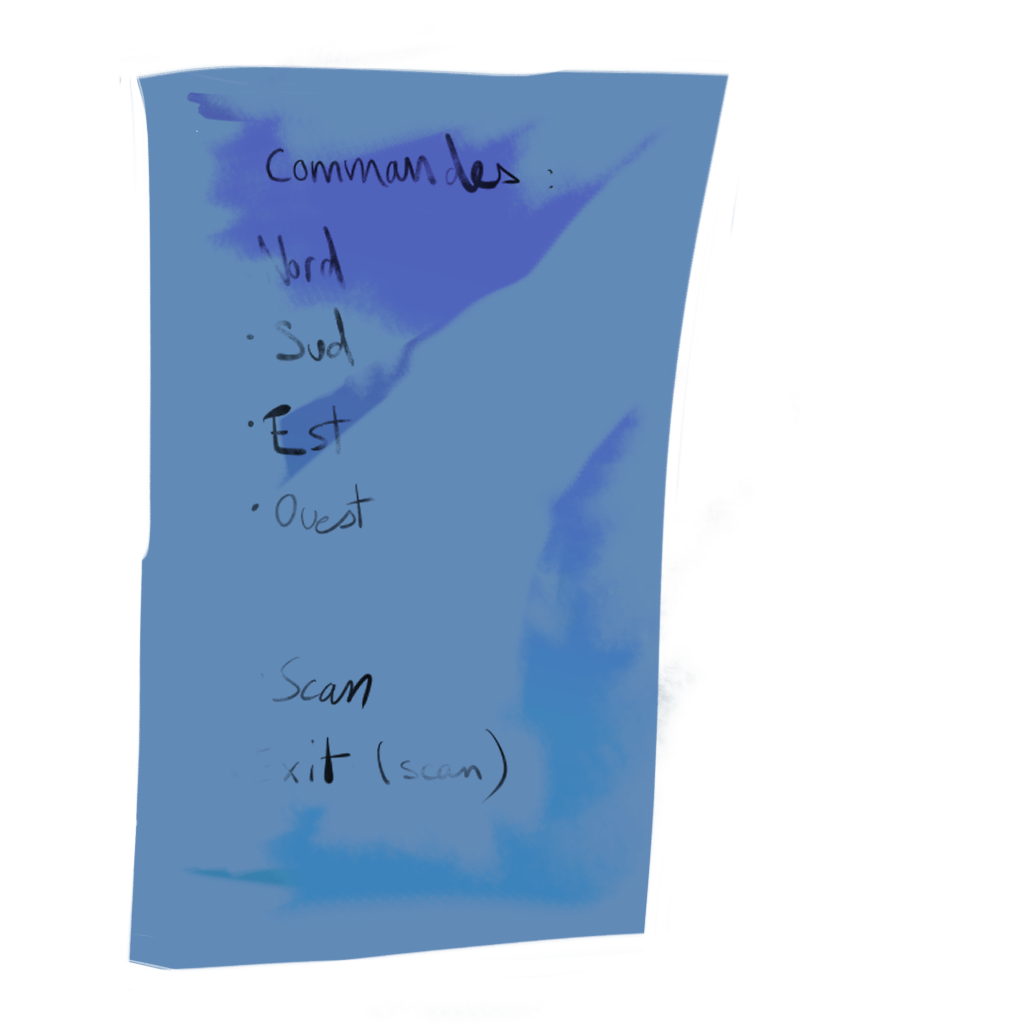 Commandes :
Nord
• Sud
• Est
• Ouest
Scan
Exit (scan)